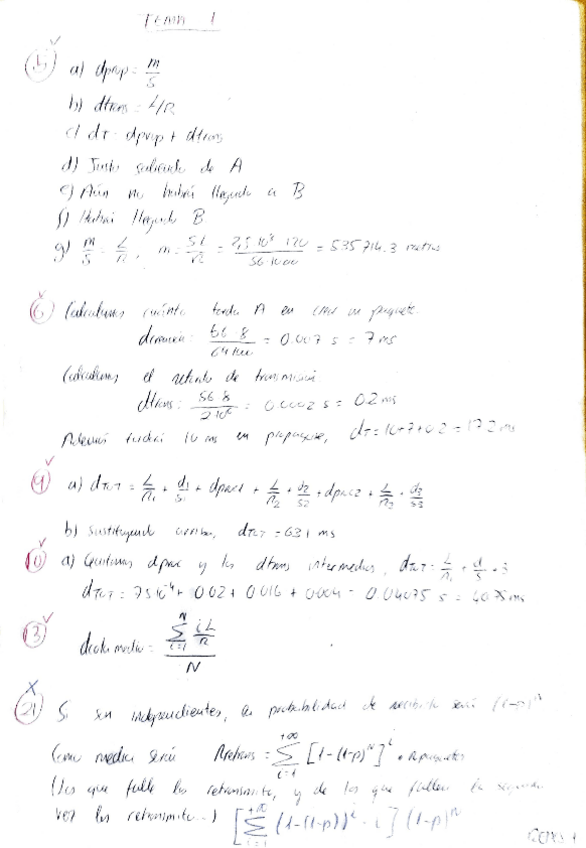 TEMA 1
5 a) dprop = m/s
b) dtrans = L/R
c) dT = dprop + dtrans
d) Justo saliendo de A
e) Aún no habrá llegado a B
f) Habrá llegado B
g) m/s = L/R, m = SL/R = 2,5·10^8·120 / 56·1000 = 535714.3 metros
6 Calculamos cuánto tarda A en crear un paquete.
56·8 / 64000 = 0.007 s = 7 ms
Calculamos el retardo de transmisión
dtrans: 56·8 / 2·10^6 = 0.0002 s = 0.2 ms
Además tardará 10 ms en propagarse, dT = 10+7+0.2 = 17.2 ms
a) dTOT = L/R1 + d1/S1 + dproc1 + L/R2 + d2/S2 + dproc2 + L/R3 + d3/S3
b) Sustituyendo dTOT = 63.1 ms
10 a) Quitamos dproc y los dtrans intermedios, dTOT = L/R1 + d/s · 3
dTOT = 7.5·10^-4 + 0.02 + 0.016 + 0.004 = 0.04075 s = 40.75 ms
13 dcola media = Σ i=1 N iL/R / N
21 Si son independientes, la probabilidad de recibirlo será (1-p)^N
Como media será = Σ i=1 +∞ [1-(1-p)^N]^i · npaquetes
(Los que falle los retransmite, y de los que fallen la segunda
vez los retransmite...) [Σ i=1 +∞ (1-(1-p))^i · i] (1-p)^N